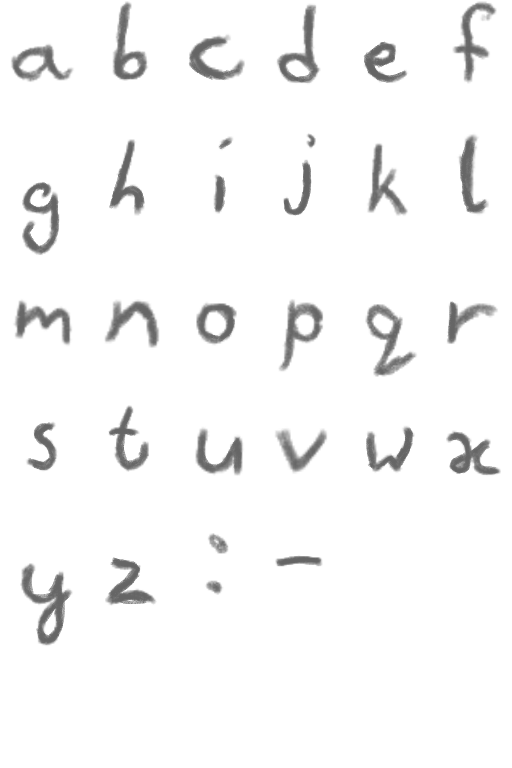 a b c d e f
g h i j k l
m n o p q r
s t u v w x
y z : -